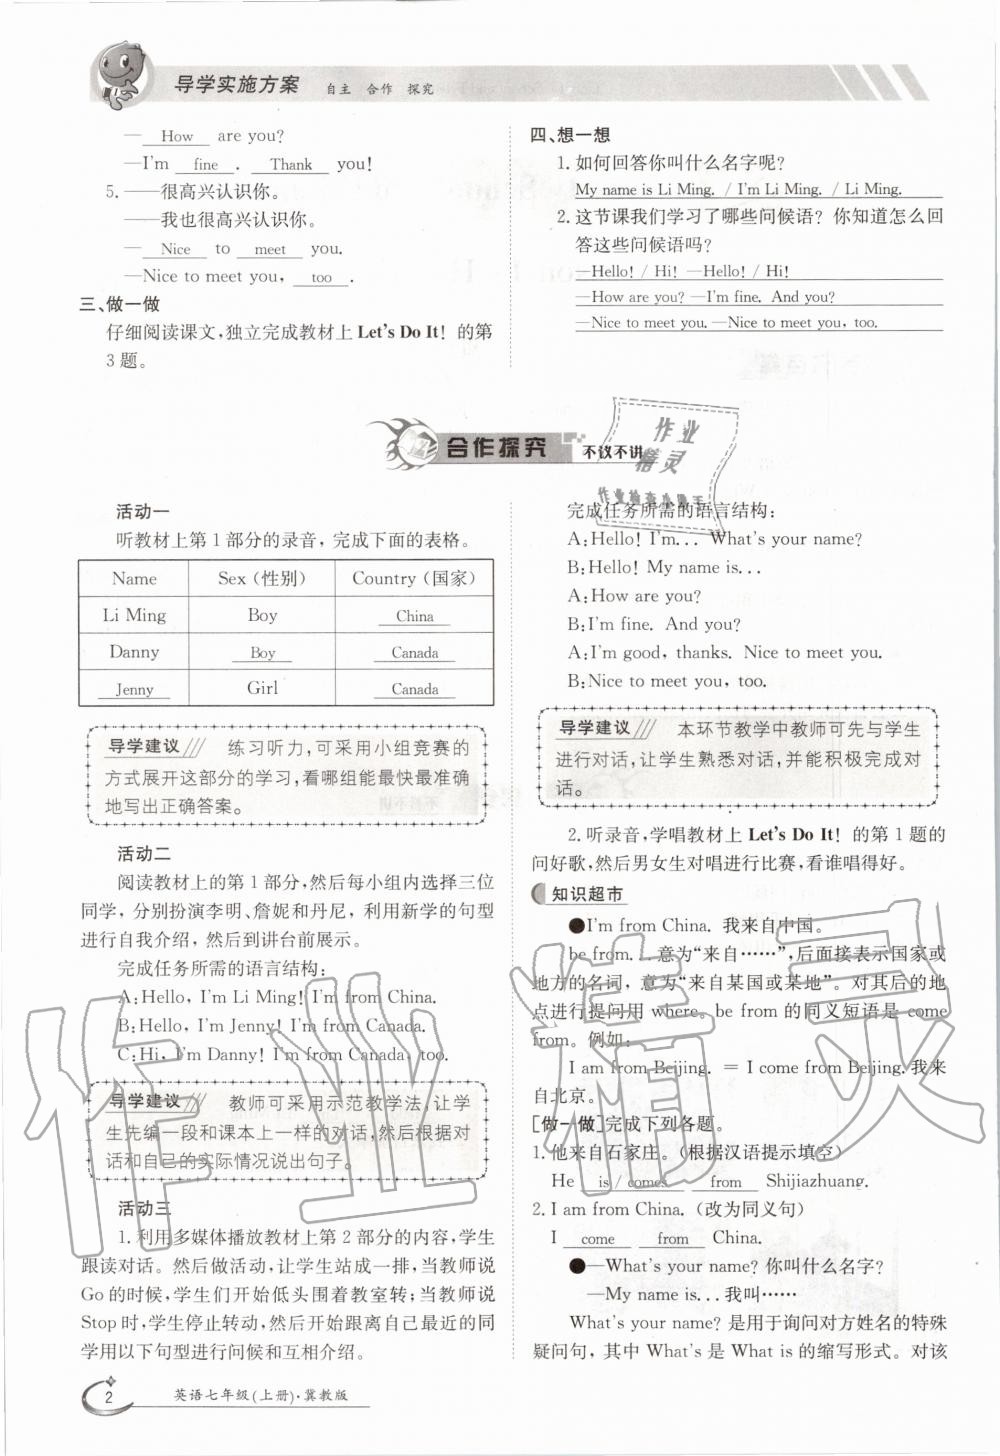 导学实施方案 自主 合作 探究
— How are you?
—I'm fine . Thank you!
5. ——很高兴认识你。
——我也很高兴认识你。
— Nice to meet you.
—Nice to meet you, too .
三、做一做
仔细阅读课文,独立完成教材上 Let's Do It! 的第
3 题。
四、想一想
1. 如何回答你叫什么名字呢?
My name is Li Ming. / I'm Li Ming. / Li Ming.
2. 这节课我们学习了哪些问候语? 你知道怎么回
答这些问候语吗?
—Hello! / Hi! —Hello! / Hi!
—How are you? —I'm fine. And you?
—Nice to meet you. —Nice to meet you, too.
合作探究 不议不讲
作业
精灵
作业检查小助手
活动一
听教材上第 1 部分的录音,完成下面的表格。
Name Sex (性别) Country (国家)
Li Ming Boy China
Danny Boy Canada
Jenny Girl Canada
导学建议 练习听力,可采用小组竞赛的
方式展开这部分的学习,看哪组能最快最准确
地写出正确答案。
活动二
阅读教材上的第 1 部分,然后每小组内选择三位
同学,分别扮演李明、詹妮和丹尼,利用新学的句型
进行自我介绍,然后到讲台前展示。
完成任务所需的语言结构:
A:Hello, I'm Li Ming! I'm from China.
B:Hello, I'm Jenny! I'm from Canada.
C:Hi, I'm Danny! I'm from Canada, too.
导学建议 教师可采用示范教学法,让学
生先编一段和课本上一样的对话,然后根据对
话和自己的实际情况说出句子。
活动三
1. 利用多媒体播放教材上第 2 部分的内容,学生
跟读对话。然后做活动,让学生站成一排,当教师说
Go 的时候,学生们开始低头围着教室转;当教师说
Stop 时,学生停止转动,然后开始跟离自己最近的同
学用以下句型进行问候和互相介绍。
完成任务所需的语言结构:
A:Hello! I'm... What's your name?
B:Hello! My name is...
A:How are you?
B:I'm fine. And you?
A:I'm good, thanks. Nice to meet you.
B:Nice to meet you, too.
导学建议 本环节教学中教师可先与学生
进行对话,让学生熟悉对话,并能积极完成对
话。
2. 听录音,学唱教材上 Let's Do It! 的第 1 题的
问好歌,然后男女生对唱进行比赛,看谁唱得好。
知识超市
●I'm from China. 我来自中国。
be from... 意为“来自……”,后面接表示国家或
地方的名词,意为“来自某国或某地”。对其后的地
点进行提问用 where。be from 的同义短语是 come
from。例如:
I am from Beijing. = I come from Beijing. 我来
自北京。
[做一做]完成下列各题。
1. 他来自石家庄。(根据汉语提示填空)
He is / comes from Shijiazhuang.
2. I am from China. (改为同义句)
I come from China.
●—What's your name? 你叫什么名字?
—My name is... 我叫……
What's your name? 是用于询问对方姓名的特殊
疑问句,其中 What's 是 What is 的缩写形式。对该
作业精灵
2 英语七年级(上册)·冀教版